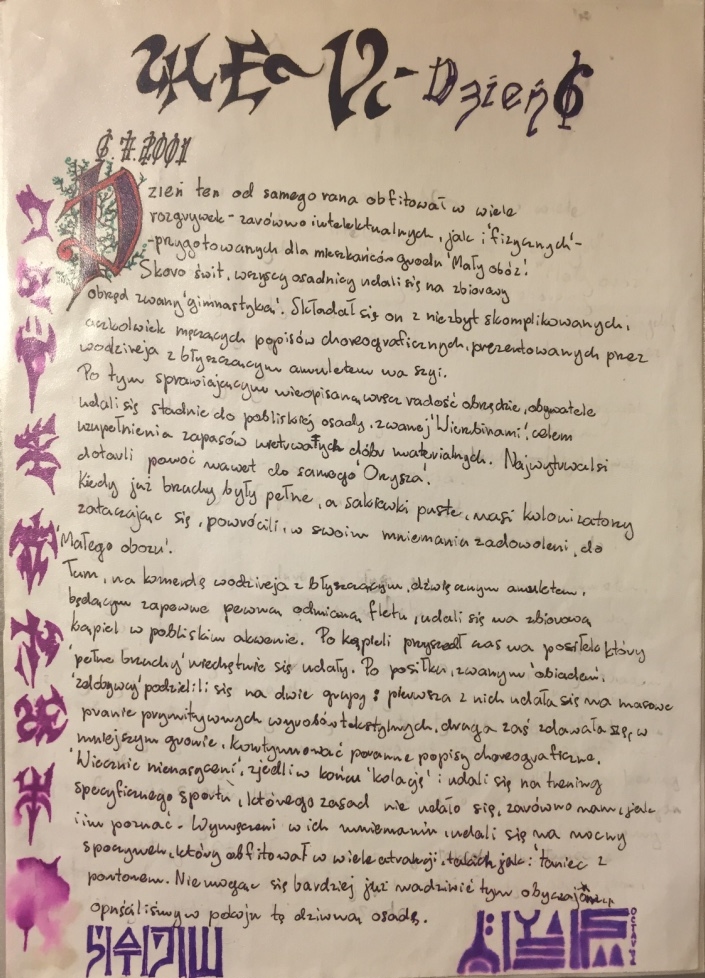 Dzień 6
6.7.2001
Dzień ten od samego rana obfitował w wiele
rozgrywek - zarówno intelektualnych, jak i 'fizycznych' -
- przygotowanych dla mieszkańców grodu 'Mały obóz'.
Skoro świt, wszyscy osadnicy udali się na zbiorowy
obrzęd zwany 'gimnastyką'. Składał się on z niezbyt skomplikowanych,
aczkolwiek męczących popisów choreograficznych, prezentowanych przez
wodzireja z błyszczącym amuletem na szyi.
Po tym sprawiającym nieopisaną wręcz radość obrzędzie, obywatele
udali się stadnie do pobliskiej osady, zwanej 'Wierzbinami', celem
uzupełnienia zapasów nietrwałych dóbr materialnych. Najwytrwalsi
dotarli ponoć nawet do samego 'Orzysza'.
Kiedy już brzuchy były pełne, a sakiewki puste, nasi kolonizatorzy
zataczając się, powrócili, w swoim mniemaniu zadowoleni, do
'Małego obozu'.
Tam, na komendę wodzireja z błyszczącym, dźwięcznym amuletem,
będącym zapewne pewną odmianą fletu, udali się na zbiorową
kąpiel w pobliskim akwenie. Po kąpieli przyszedł czas na posiłek który
'pełne brzuchy' niechętnie się udały. Po posiłku, zwanym 'obiadem',
'zdobywcy' podzielili się na dwie grupy: pierwsza z nich udała się na masowe
pranie prymitywnych wyrobów tekstylnych, druga zaś zdawała się, w
mniejszym gronie, kontynuować poranne popisy choreograficzne.
'Wiecznie nienasyceni', zjedli w końcu 'kolację' i udali się na trening
specyficznego sportu, którego zasad nie udało się, zarówno nam, jak
i im poznać. Wymęczeni w ich mniemaniu, udali się na nocny
spoczynek, który obfitował w wiele atrakcji, takich jak: 'taniec z
pontonem'. Nie mogąc się bardziej już nadziwić tym obyczajom,
opuściliśmy w pokoju tę dziwną osadę.